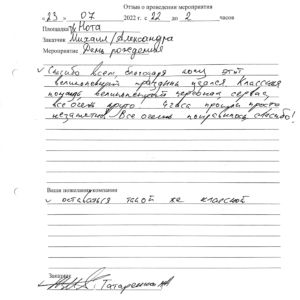 Отзыв о проведении мероприятия
« 23 » 07 2022 г. с 22 до 2 часов
Площадка Нота
Заказчик Михаил/Александра
Мероприятие День рождения
Спасибо всем, благодаря кому этот
великолепный праздник удался. Классная
площадка, великолепный персонал, сервис,
все очень круто. 4 часа прошли просто
незаметно. Все очень понравилось, спасибо!
Ваши пожелания компании
оставаться такой же классной
Заказчик